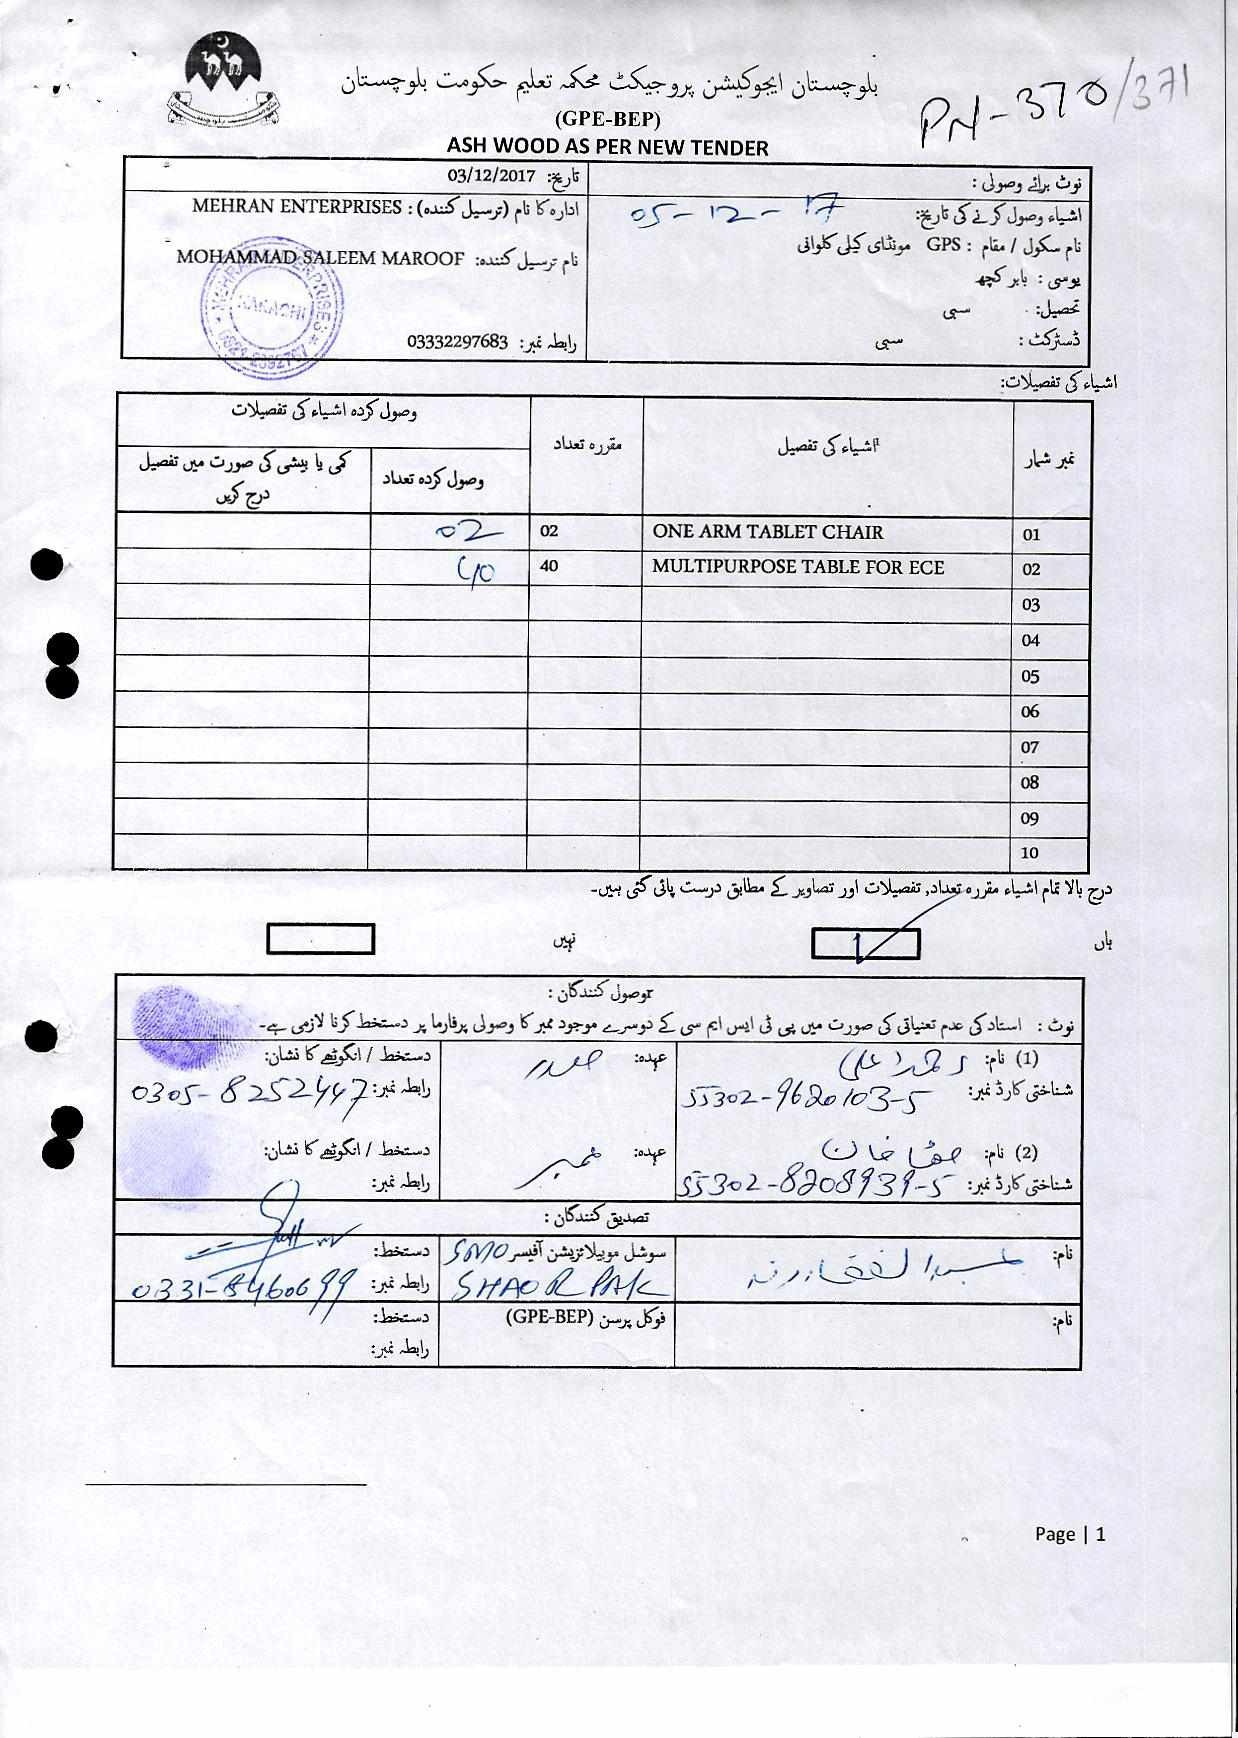 بلوچستان ایجوکیشن پروجیکٹ محکمہ تعلیم حکومت بلوچستان
(GPE-BEP)
PN-370/371
ASH WOOD AS PER NEW TENDER
نوٹ برائے وصولی :
تاریخ: 03/12/2017
اشیاء وصول کرنے کی تاریخ: 05-12-17
ادارہ کا نام (ترسیل کنندہ) : MEHRAN ENTERPRISES
نام سکول / مقام : GPS مونڈای کیلی کلوانی
نام ترسیل کنندہ: MOHAMMAD SALEEM MAROOF
یوسی : بابر کچھ
تحصیل: سبی
ڈسٹرکٹ : سبی
رابطہ نمبر: 03332297683
MEHRAN ENTERPRISES
KARACHI
اشیاء کی تفصیلات:
نمبر شمار
اشیاء کی تفصیل
مقررہ تعداد
وصول کردہ اشیاء کی تفصیلات
وصول کردہ تعداد
کمی یا بیشی کی صورت میں تفصیل
درج کریں
01 ONE ARM TABLET CHAIR 02 02
02 MULTIPURPOSE TABLE FOR ECE 40 40
03
04
05
06
07
08
09
10
درج بالا تمام اشیاء مقررہ تعداد, تفصیلات اور تصاویر کے مطابق درست پائی گئی ہیں۔
ہاں
نہیں
وصول کنندگان :
نوٹ : استاد کی عدم تعنیاتی کی صورت میں پی ٹی ایس ایم سی کے دوسرے موجود ممبر کا وصولی پرفارما پر دستخط کرنا لازمی ہے۔
(1) نام: علی
عہدہ: صدر
دستخط / انگوٹھے کا نشان:
شناختی کارڈ نمبر: 55302-9620103-5
رابطہ نمبر: 0305-8252447
(2) نام: خان
عہدہ: ممبر
دستخط / انگوٹھے کا نشان:
شناختی کارڈ نمبر: 55302-8208939-5
رابطہ نمبر:
تصدیق کنندگان :
نام:
سوشل موبیلائزیشن آفیسر SMO
SHAOOR PAK
دستخط:
رابطہ نمبر: 0331-8460699
نام:
فوکل پرسن (GPE-BEP)
دستخط:
رابطہ نمبر:
Page | 1